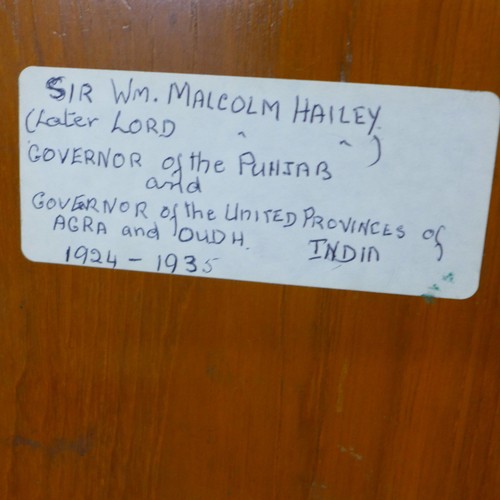 SIR WM. MALCOLM HAILEY
(Later LORD " " )
GOVERNOR of the PUNJAB
and
GOVERNOR of the UNITED PROVINCES of
AGRA and OUDH. INDIA
1924 - 1935